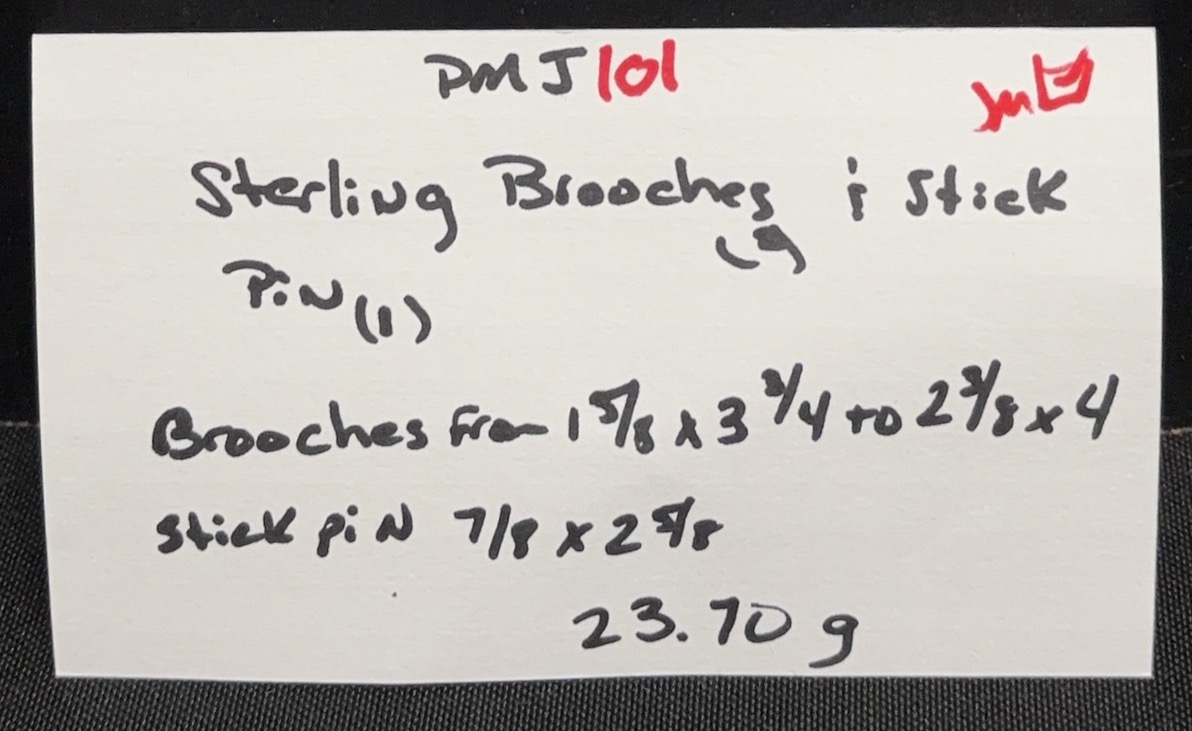 DMJ101
Sterling Brooches & Stick
Pin (1)
Brooches From 1 5/8 x 3 3/4 to 2 3/8 x 4
Stick piN 7/8 x 2 5/8
23.70 g